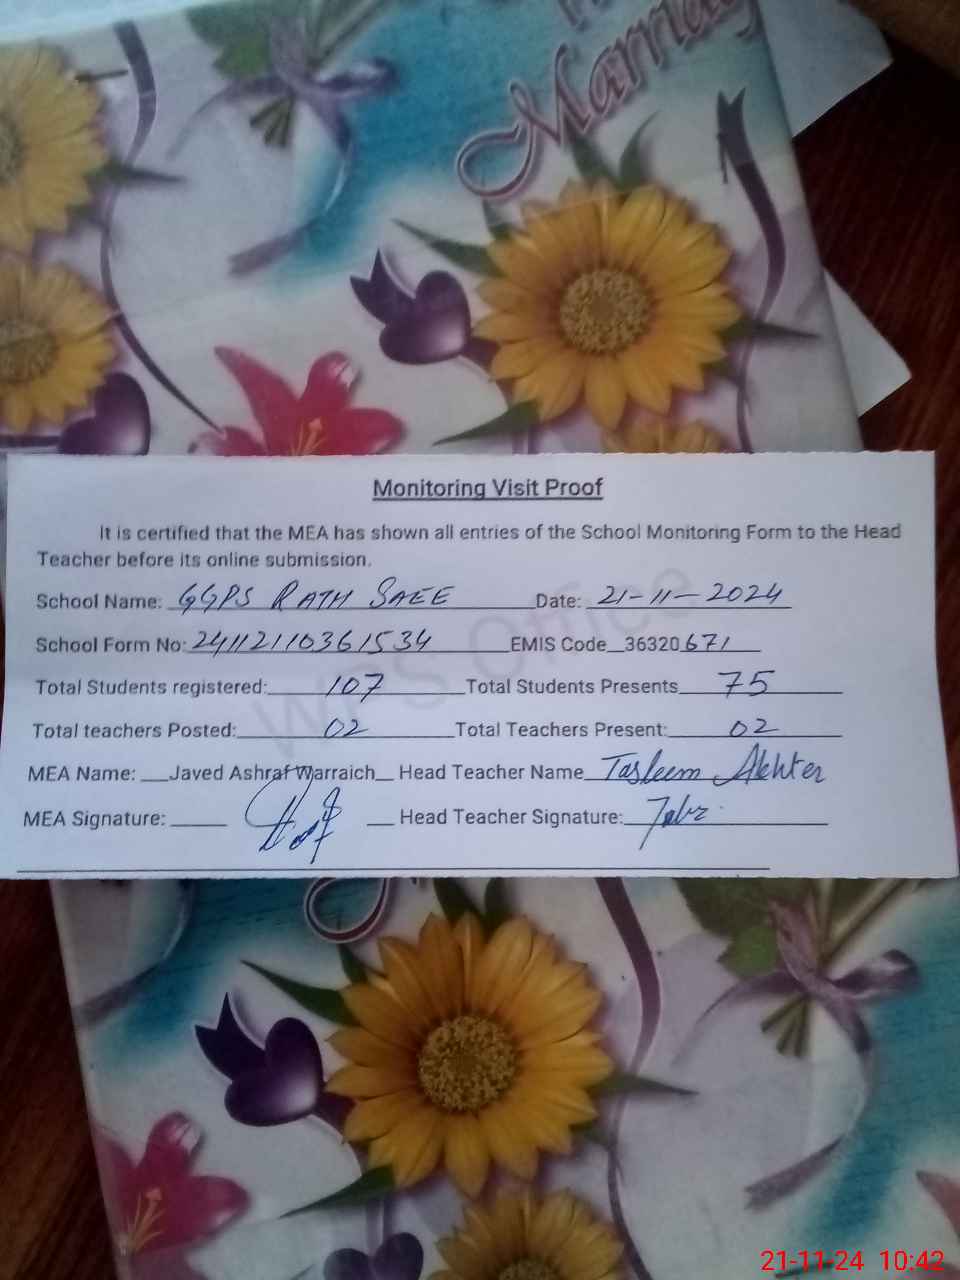 Marriage
Monitoring Visit Proof
It is certified that the MEA has shown all entries of the School Monitoring Form to the Head
Teacher before its online submission.
School Name: GGPS RATH SAEE Date: 21-11-2024
School Form No: 24112110361534 EMIS Code 36320671
Total Students registered: 107 Total Students Presents 75
Total teachers Posted: 02 Total Teachers Present: 02
MEA Name: Javed Ashraf Warraich Head Teacher Name Tasleem Akhter
MEA Signature: Head Teacher Signature:
WPS Office
21-11-24 10:42